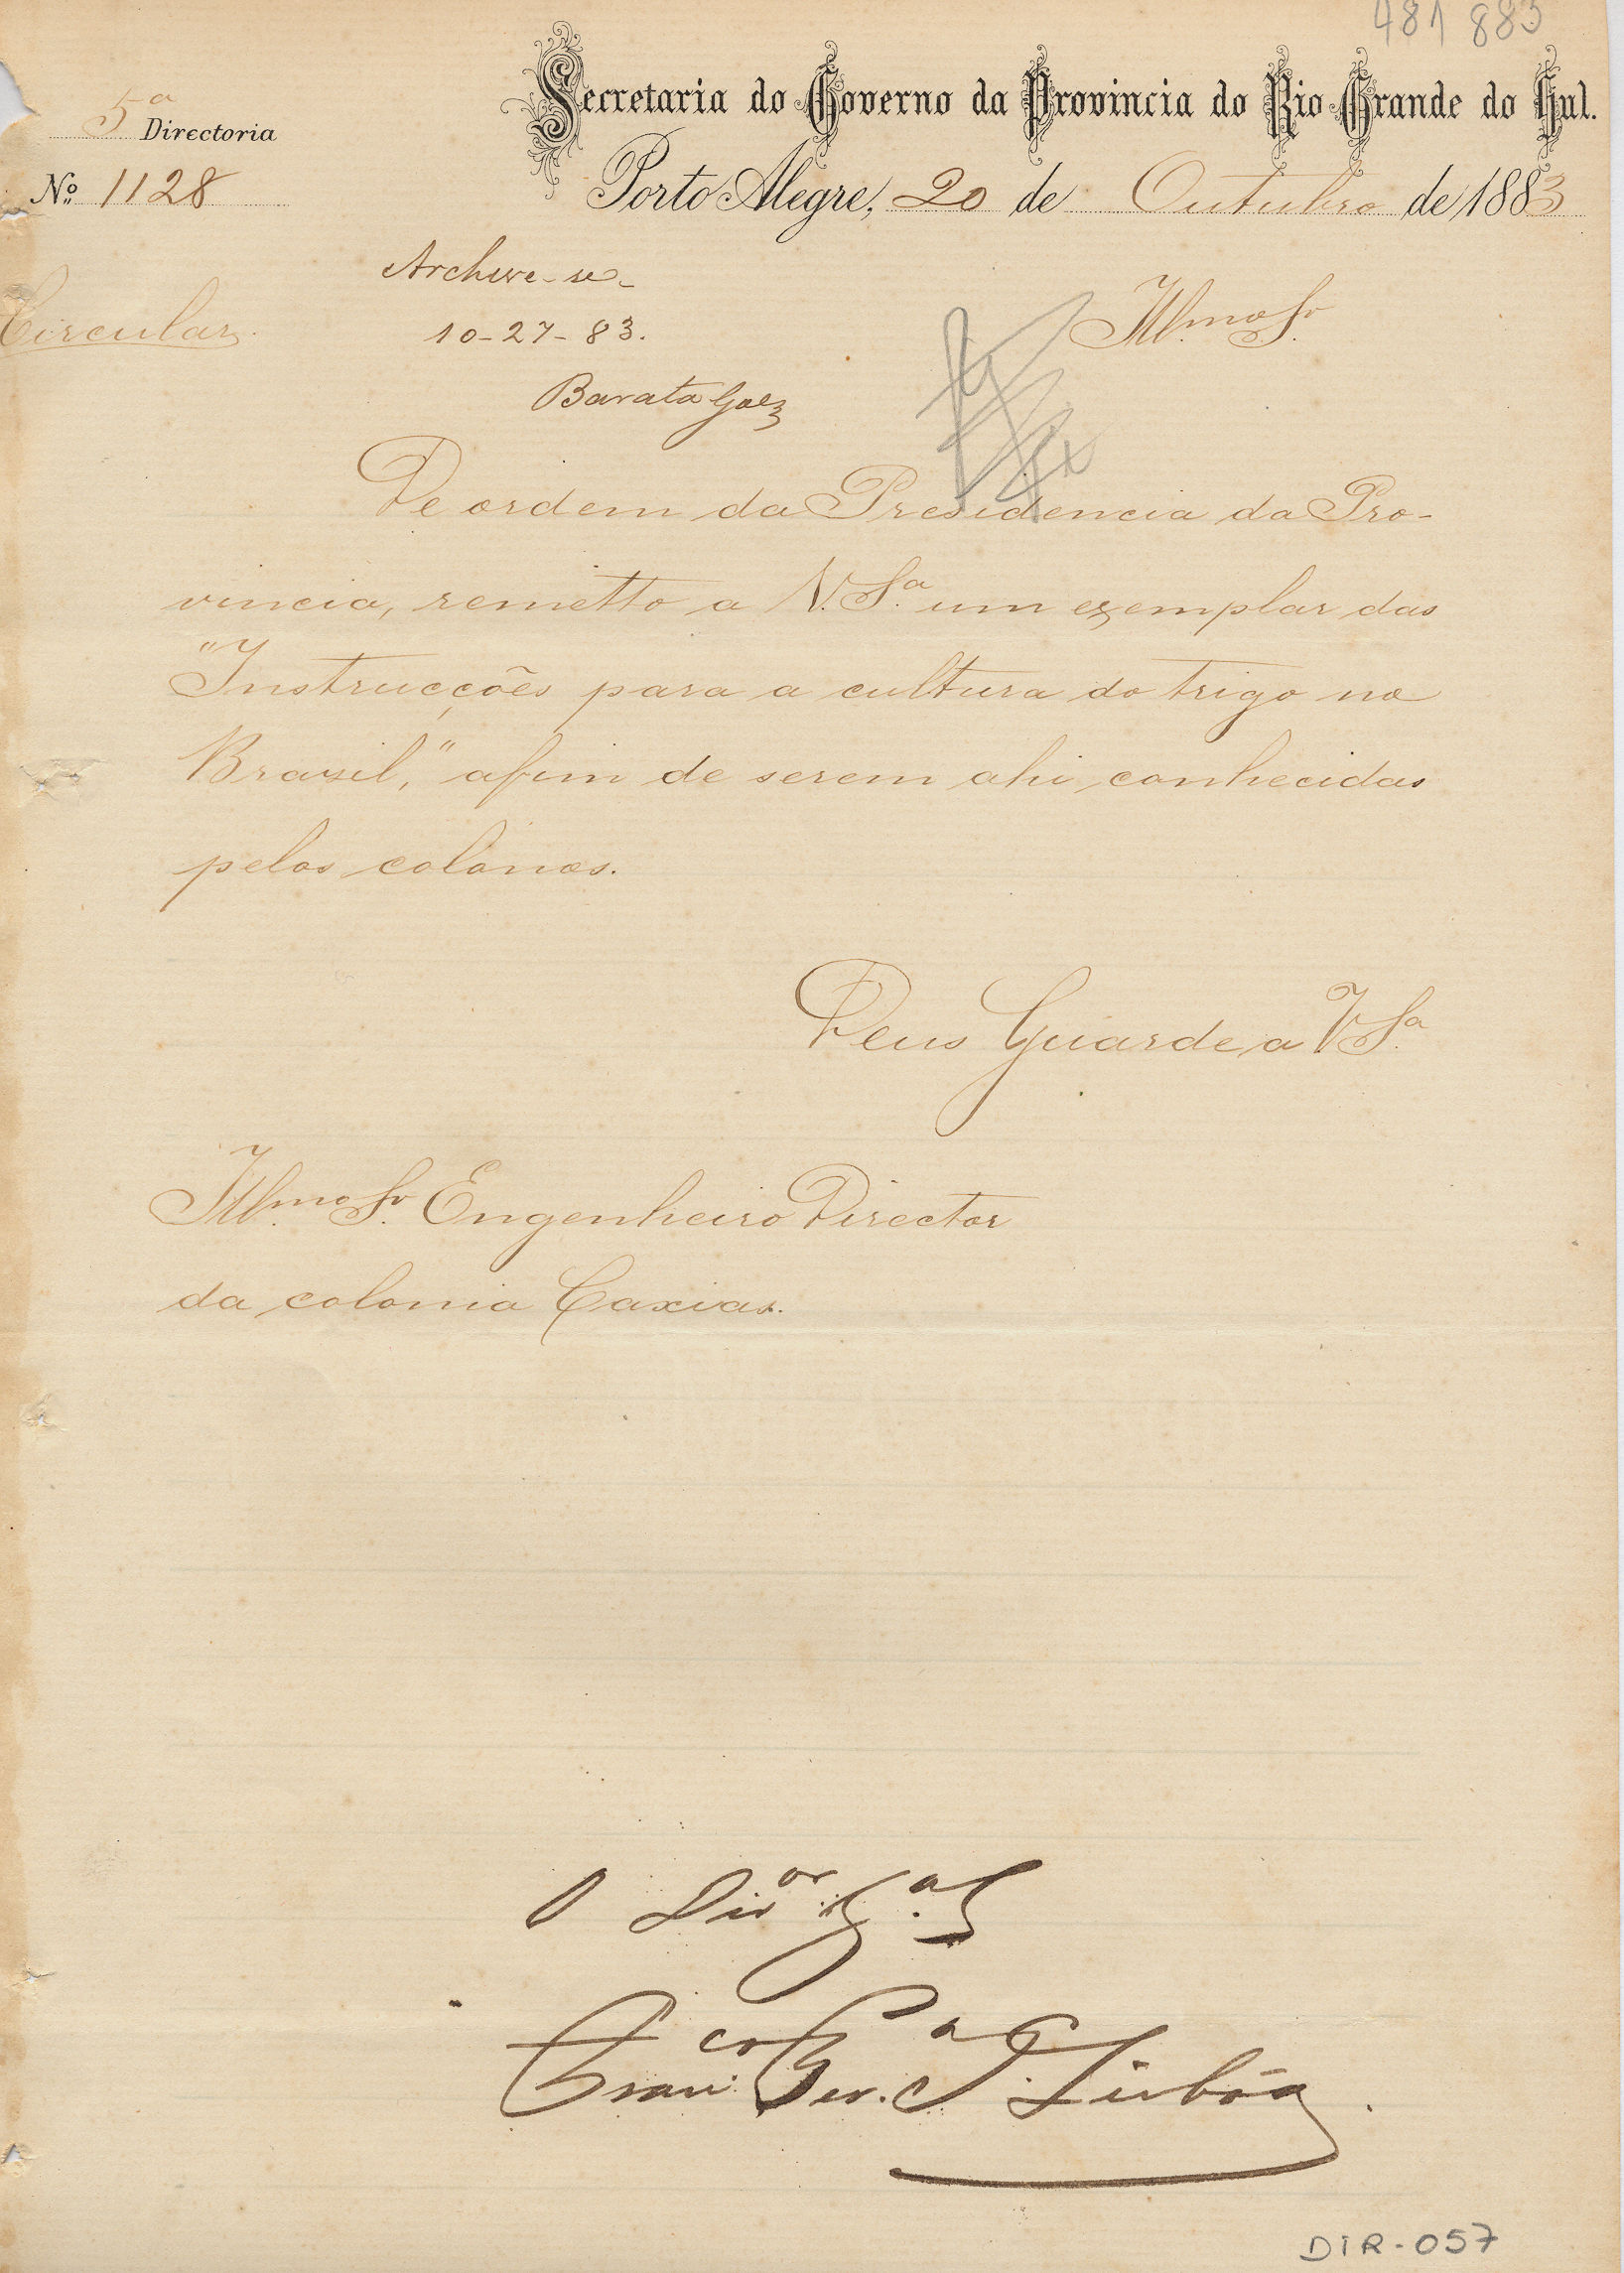 481 883
Secretaria do Governo da Provincia do Rio Grande do Sul.
5ª Directoria
Nº 1128
Porto Alegre, 20 de Outubro de 1883
Archive-se
10-27-83.
Barata Góes
Circular
Illmo Sr.
De ordem da Presidencia da Pro-
vincia, remetto a V. Sª um exemplar das
"Instrucções para a cultura do trigo no
Brazil," afim de serem ahi conhecidas
pelos colonos.
Deus Guarde a V Sª
Illmo Sr. Engenheiro Director
da colonia Caxias.
O Dior Gal
Franco Per. Sª Lisbôa
DIR-057